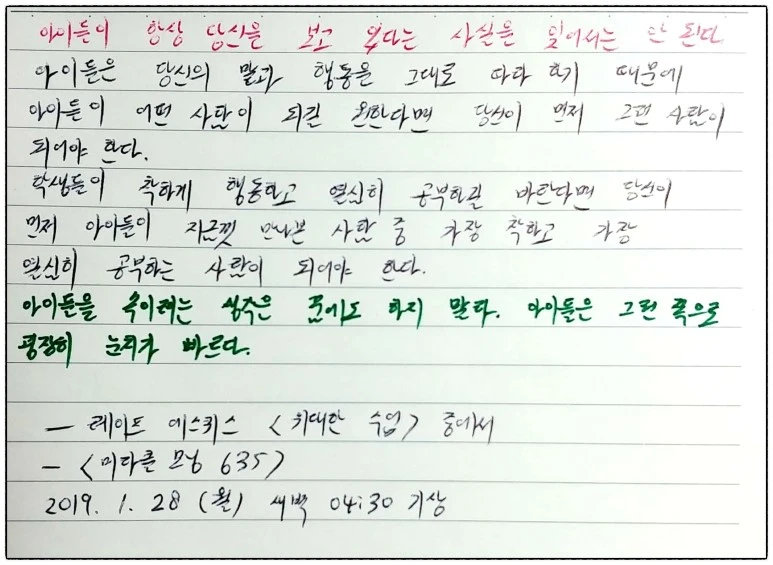 아이들이 항상 당신을 보고 있다는 사실을 잊어서는 안 된다
아이들은 당신의 말과 행동을 그대로 따라 하기 때문에
아이들이 어떤 사람이 되길 원한다면 당신이 먼저 그런 사람이
되어야 한다.
학생들이 착하게 행동하고 열심히 공부하길 바란다면 당신이
먼저 아이들이 지금껏 만나본 사람 중 가장 착하고 가장
열심히 공부하는 사람이 되어야 한다.
아이들을 속이려는 생각은 꿈에도 하지 말라. 아이들은 그런 쪽으로
굉장히 눈치가 빠르다.
- 레이프 에스퀴스 <위대한 수업> 중에서
- <미라클 모닝 635>
2019. 1. 28 (월) 새벽 04:30 기상